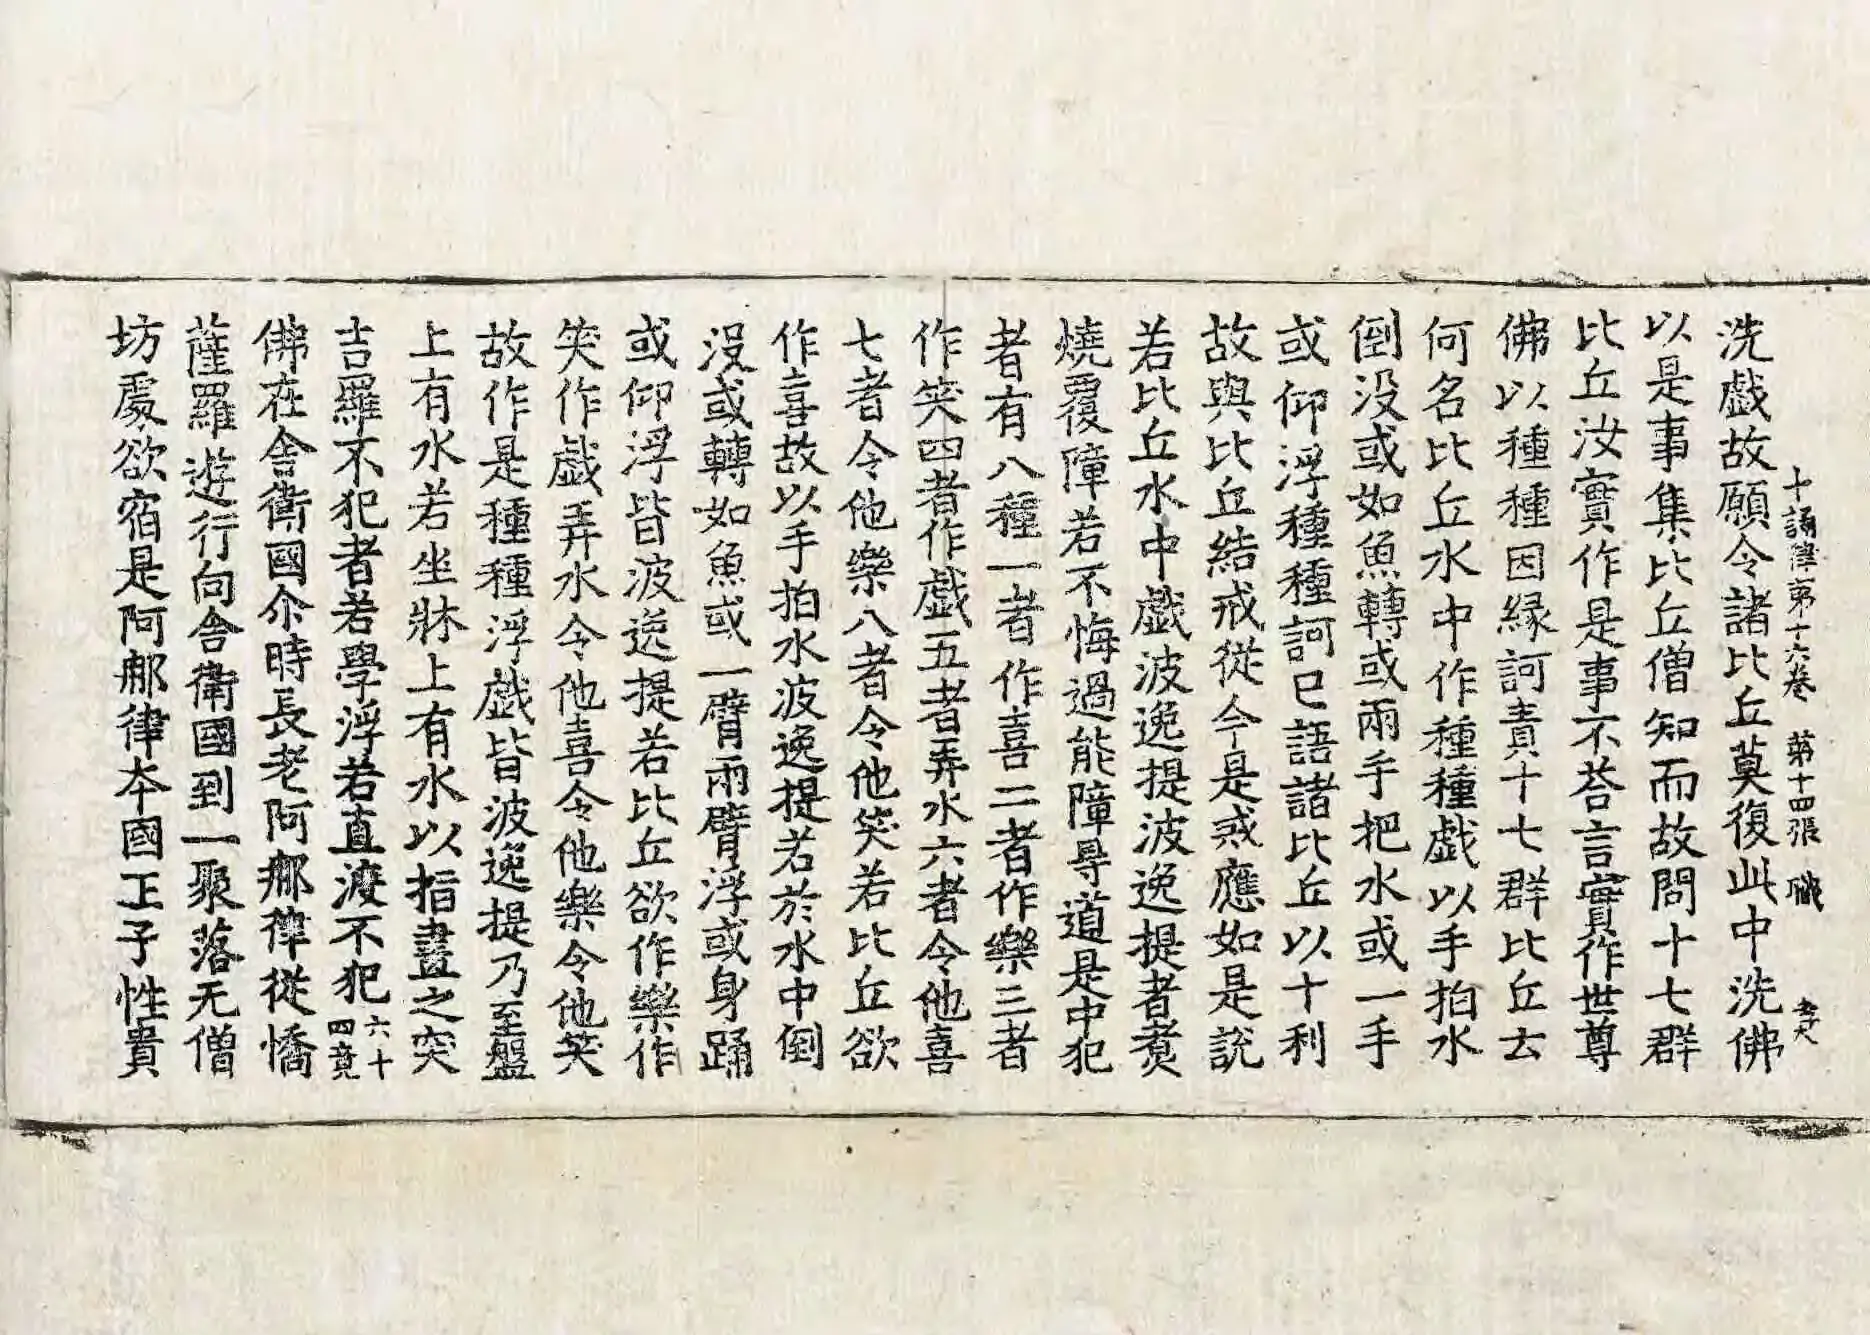 十誦律第十六卷 第十四張 職
洗戱故願令諸比丘莫復此中洗佛
以是事集比丘僧知而故問十七群
比丘汝實作是事不荅言實作世尊
佛以種種因緣訶責十七群比丘去
何名比丘水中作種種戱以手拍水
倒没或如魚轉或兩手把水或一手
或仰浮種種訶已語諸比丘以十利
故與比丘結戒從今是戒應如是說
若比丘水中戱波逸提波逸提者煑
燒覆障若不悔過能障㝵道是中犯
者有八種一者作喜二者作樂三者
作笑四者作戱五者弄水六者令他喜
七者令他樂八者令他笑若比丘欲
作喜故以手拍水波逸提若於水中倒
没或轉如魚或一臂兩臂浮或身踊
或仰浮皆波逸提若比丘欲作樂作
笑作戱弄水令他喜令他樂令他笑
故作是種種浮戱皆波逸提乃至盤
上有水若坐牀上有水以指畫之突
吉羅不犯者若學浮若直渡不犯六十四竟
佛在舎衛國尒時長老阿那律從憍
薩羅遊行向舎衛國到一聚落无僧
坊處欲宿是阿那律本國王子性貴